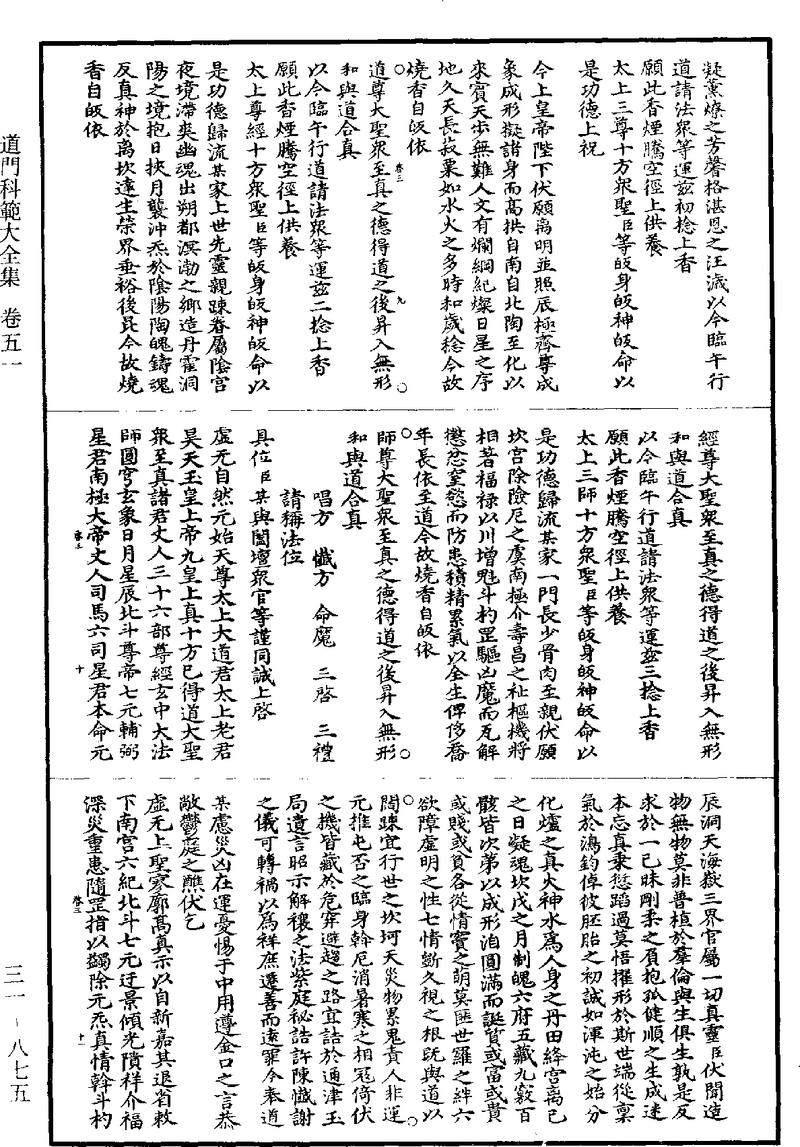 凝薰燎之芳馨格湛恩之汪濊以今臨午行
道請法衆等運玆初捻上香
願此香煙騰空徑上供養
太上三尊十方衆聖臣等皈身皈神皈命以
是功德上祝
今上皇帝陛下伏願离明並照辰極齊尊成
象成形擬諸身而高拱自南自北陶至化以
來賓天步無難人文有爛綱紀燦日星之序
地久天長菽粟如水火之多時和歲稔今故
燒香自皈依
道尊大聖衆至真之德得道之後昇入無形
和與道合真
以今臨午行道請法衆等運玆二捻上香
願此香煙騰空徑上供養
太上尊經十方衆聖臣等皈身皈神皈命以
是功德歸流某家上世先靈親踈眷屬陰宮
夜境滯爽幽魂出朔都溟渤之鄉造丹霍洞
陽之境抱日挾月襲沖炁於陰陽陶魄鑄魂
反真神於离坎達生榮界垂裕後昆今故燒
香自皈依
經尊大聖衆至真之德得道之後昇入無形
和與道合真
以今臨午行道請法衆等運玆三捻上香
願此香煙騰空徑上供養
太上三師十方衆聖臣等皈身皈神皈命以
是功德歸流某家一門長少骨肉至親伏願
坎宮除險厄之虞南極介壽昌之祉樞機將
相著福祿以川增魁斗杓罡驅凶魔而瓦解
懲忿窒慾而防患積精累氣以全生俾侈喬
年長依至道今故燒香自皈依
師尊大聖衆至真之德得道之後昇入無形
和與道合真
唱方 懺方 命魔 三啓 三禮
請稱法位
具位臣某與闔壇衆官等謹同誠上啓
虛无自然元始天尊太上大道君太上老君
昊天玉皇上帝九皇上真十方已得道大聖
衆至真諸君丈人三十六部尊經玄中大法
師圓穹玄象日月星辰北斗尊帝七元輔弼
星君南極大帝丈人司馬六司星君本命元
辰洞天海嶽三界官屬一切真靈臣伏聞造
物無物莫非普植於羣倫與生俱生孰是反
求於一己昧剛柔之負抱孤健順之生成迷
本忘真秉愆蹈過莫悟擢形於斯世端從稟
氣於鴻鈞倬彼胚胎之初誠如渾沌之始分
化爐之真火神水爲人身之丹田絳宮离已
之日凝魂坎戊之月制魄六府五藏九竅百
骸皆次第以成形洎圓滿而誕質或富或貴
或賤或貧各從情竇之萌莫匪世羅之絆六
欲障虛明之性七情斷久視之根旣與道以
闊踈宜行世之坎坷天災物累鬼責人非運
元推屯否之臨身斡尼消暑寒之相冦倚伏
之機皆藏於危穽避趨之路宜詰於通津玉
局遺言昭示解禳之法紫庭秘誥許陳懺謝
之儀可轉禍以爲祥庶遷善而遠罪今奉道
某慮災凶在運憂惕于中用遵金口之言恭
敞鬱庭之醮伏乞
虛无上聖寥廓高真示以自新嘉其退省敕
下南宮六紀北斗七元迂景傾光隤祥介福
深災重患隨罡指以蠲除元炁真情斡斗杓
卷三 九
卷三 十
卷三 十一
道門科範大全集 卷五一
三一－八七五